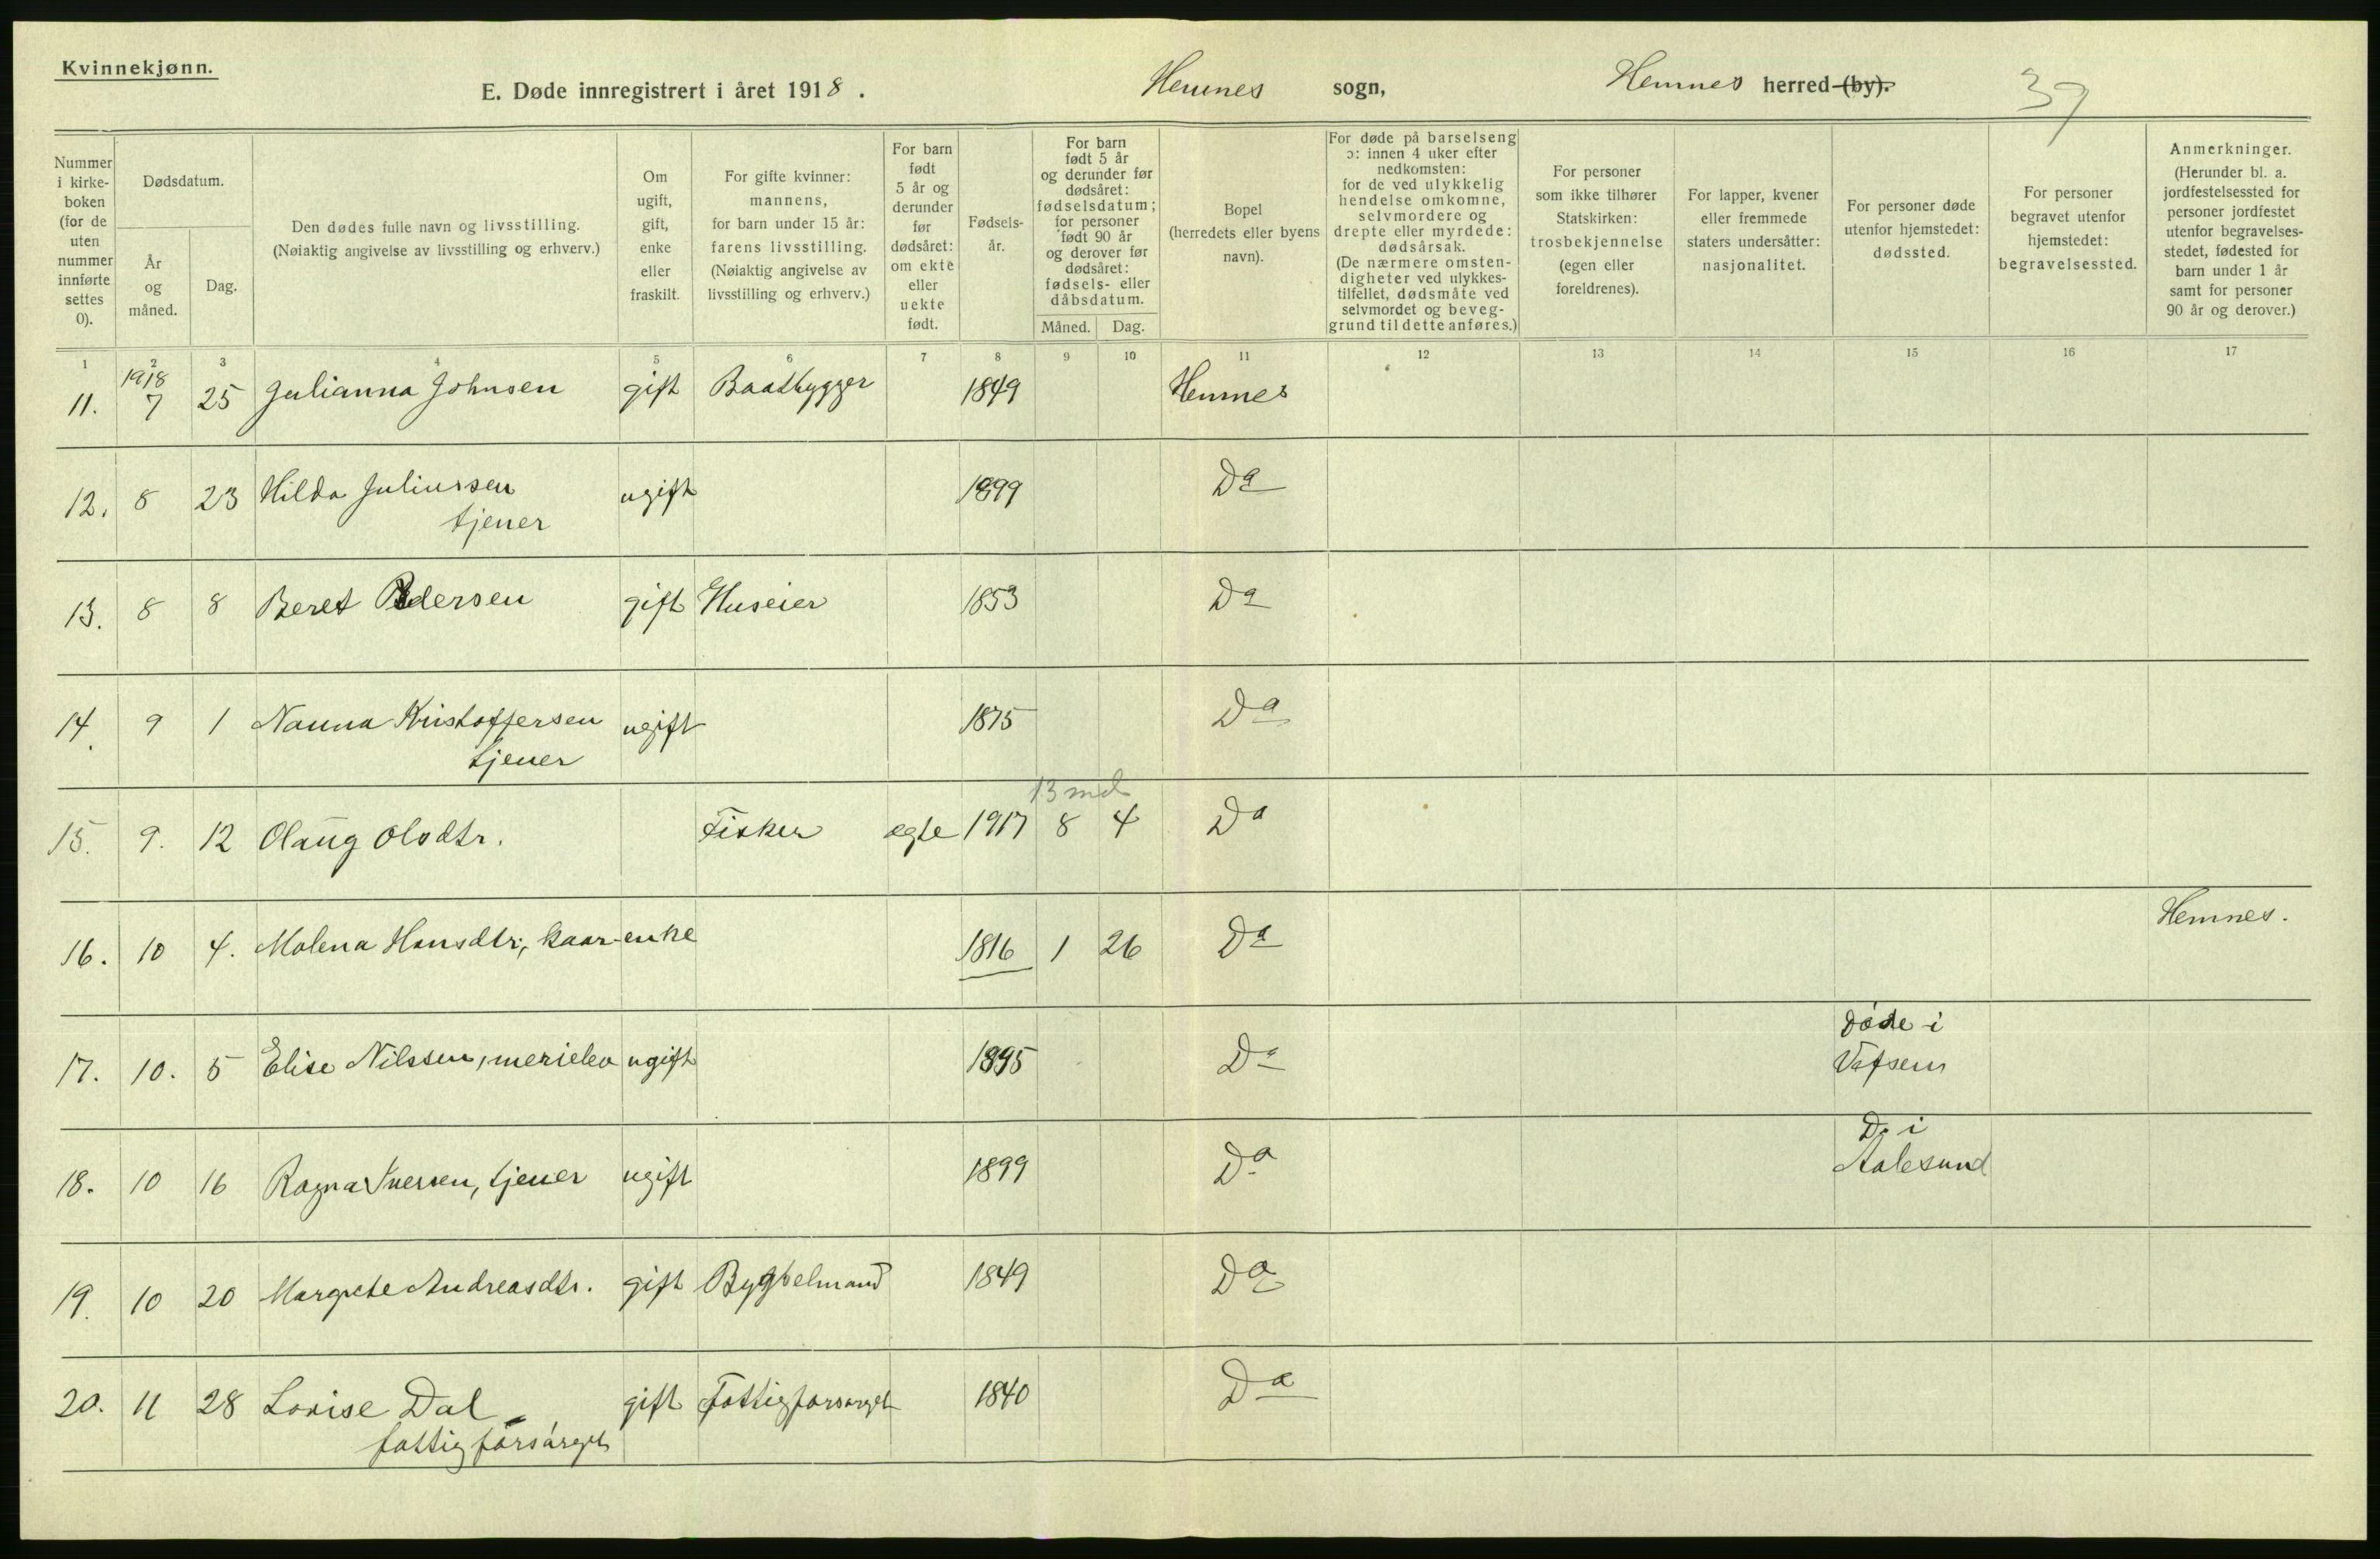 Kvinnekjønn.
E. Døde innregistrert i året 1918. Hemnes sogn, Hemnes herred (by). 37
Nummer i kirke- boken (for de uten nummer innførte settes 0).
Dødsdatum.
År og måned.
Dag.
Den dødes fulle navn og livsstilling. (Nøiaktig angivelse av livsstilling og erhverv.)
Om ugift, gift, enke eller fraskilt.
For gifte kvinner: mannens, for barn under 15 år: farens livsstilling. (Nøiaktig angivelse av livsstilling og erhverv.)
For barn født 5 år og derunder før dødsåret: om ekte eller uekte født.
Fødsels- år.
For barn født 5 år og derunder før dødsåret: fødselsdatum; for personer født 90 år og derover før dødsåret: fødsels- eller dåbsdatum.
Måned. Dag.
Bopel (herredets eller byens navn).
For døde på barselseng ɔ: innen 4 uker efter nedkomsten: for de ved ulykkelig hendelse omkomne, selvmordere og drepte eller myrdede: dødsårsak. (De nærmere omsten- digheter ved ulykkes- tilfellet, dødsmåte ved selvmordet og beveg- grund til dette anføres.)
For personer som ikke tilhører Statskirken: trosbekjennelse (egen eller foreldrenes).
For lapper, kvener eller fremmede staters undersåtter: nasjonalitet.
For personer døde utenfor hjemstedet: dødssted.
For personer begravet utenfor hjemstedet: begravelsessted.
Anmerkninger. (Herunder bl. a. jordfestelsessted for personer jordfestet utenfor begravelses- stedet, fødested for barn under 1 år samt for personer 90 år og derover.)
1 2 3 4 5 6 7 8 9 10 11 12 13 14 15 16 17
1918
11. 7 25 Julianna Johnsen gift Baatbygger 1849 Hemnes
12. 8 23 Hilda Juliussen ugift 1899 Do
tjener
13. 8 8 Beret Pedersen gift Huseier 1853 Do
14. 9 1 Nanna Kristoffersen ugift 1875 Do
tjener
13 md
15. 9. 12 Olaug Olsdtr. Fisker egte 1917 8 4 Do
16. 10 4. Malena Hansdtr., kaar- enke 1816 1 26 Do Hemnes.
Døde i
17. 10. 5 Elise Nilssen, ugift 1895 Do Vefsen
D. i
18. 10 16 Ragna Iversen, tjener ugift 1899 Do Aalesund
19. 10 20 Margrete Andreasdtr. gift Bygselmand 1849 Do
20. 11 28 Lovise Dal gift Fattigforsørget 1840 Do
fattigforsørget